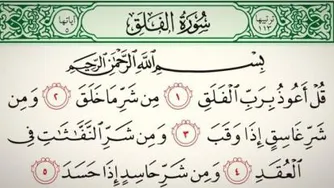 ترتيبها ١١٣ سُورَةُ الْفَلَقِ آياتها ٥
بِسْمِ اللَّهِ الرَّحْمَٰنِ الرَّحِيمِ
قُلْ أَعُوذُ بِرَبِّ الْفَلَقِ ١ مِن شَرِّ مَا خَلَقَ ٢ وَمِن
شَرِّ غَاسِقٍ إِذَا وَقَبَ ٣ وَمِن شَرِّ النَّفَّٰثَٰتِ فِي
الْعُقَدِ ٤ وَمِن شَرِّ حَاسِدٍ إِذَا حَسَدَ ٥